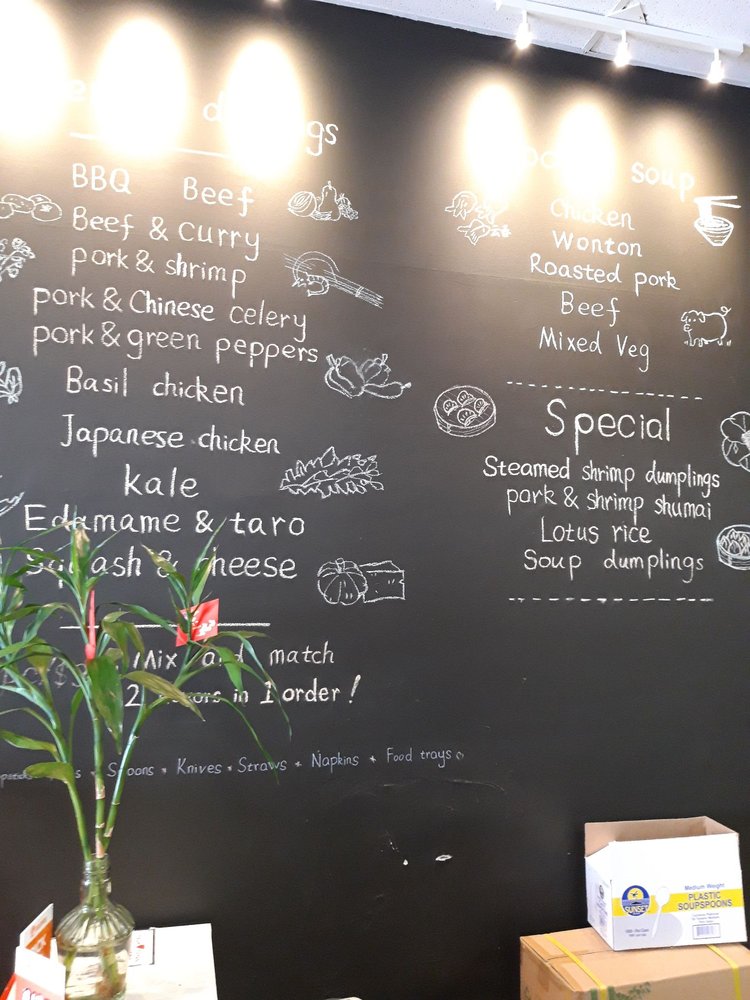 BBQ Beef
Beef & curry
pork & shrimp
pork & Chinese celery
pork & green peppers
Basil chicken
Japanese chicken
kale
Edamame & taro
Squash & cheese
Mix and match
2 in 1 order!
Spoons * Knives * Straws * Napkins * Food trays
soup
Chicken
Wonton
Roasted pork
Beef
Mixed Veg
Special
Steamed shrimp dumplings
pork & shrimp shumai
Lotus rice
Soup dumplings
Medium Weight
PLASTIC
SOUPSPOONS
SUNSET